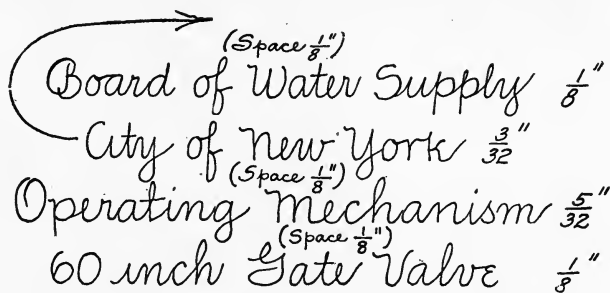 (Space 1/8")
Board of Water Supply 1/8"
City of New York 3/32"
(Space 1/8")
Operating Mechanism 5/32"
(Space 1/8")
60 inch Gate Valve 1/8"